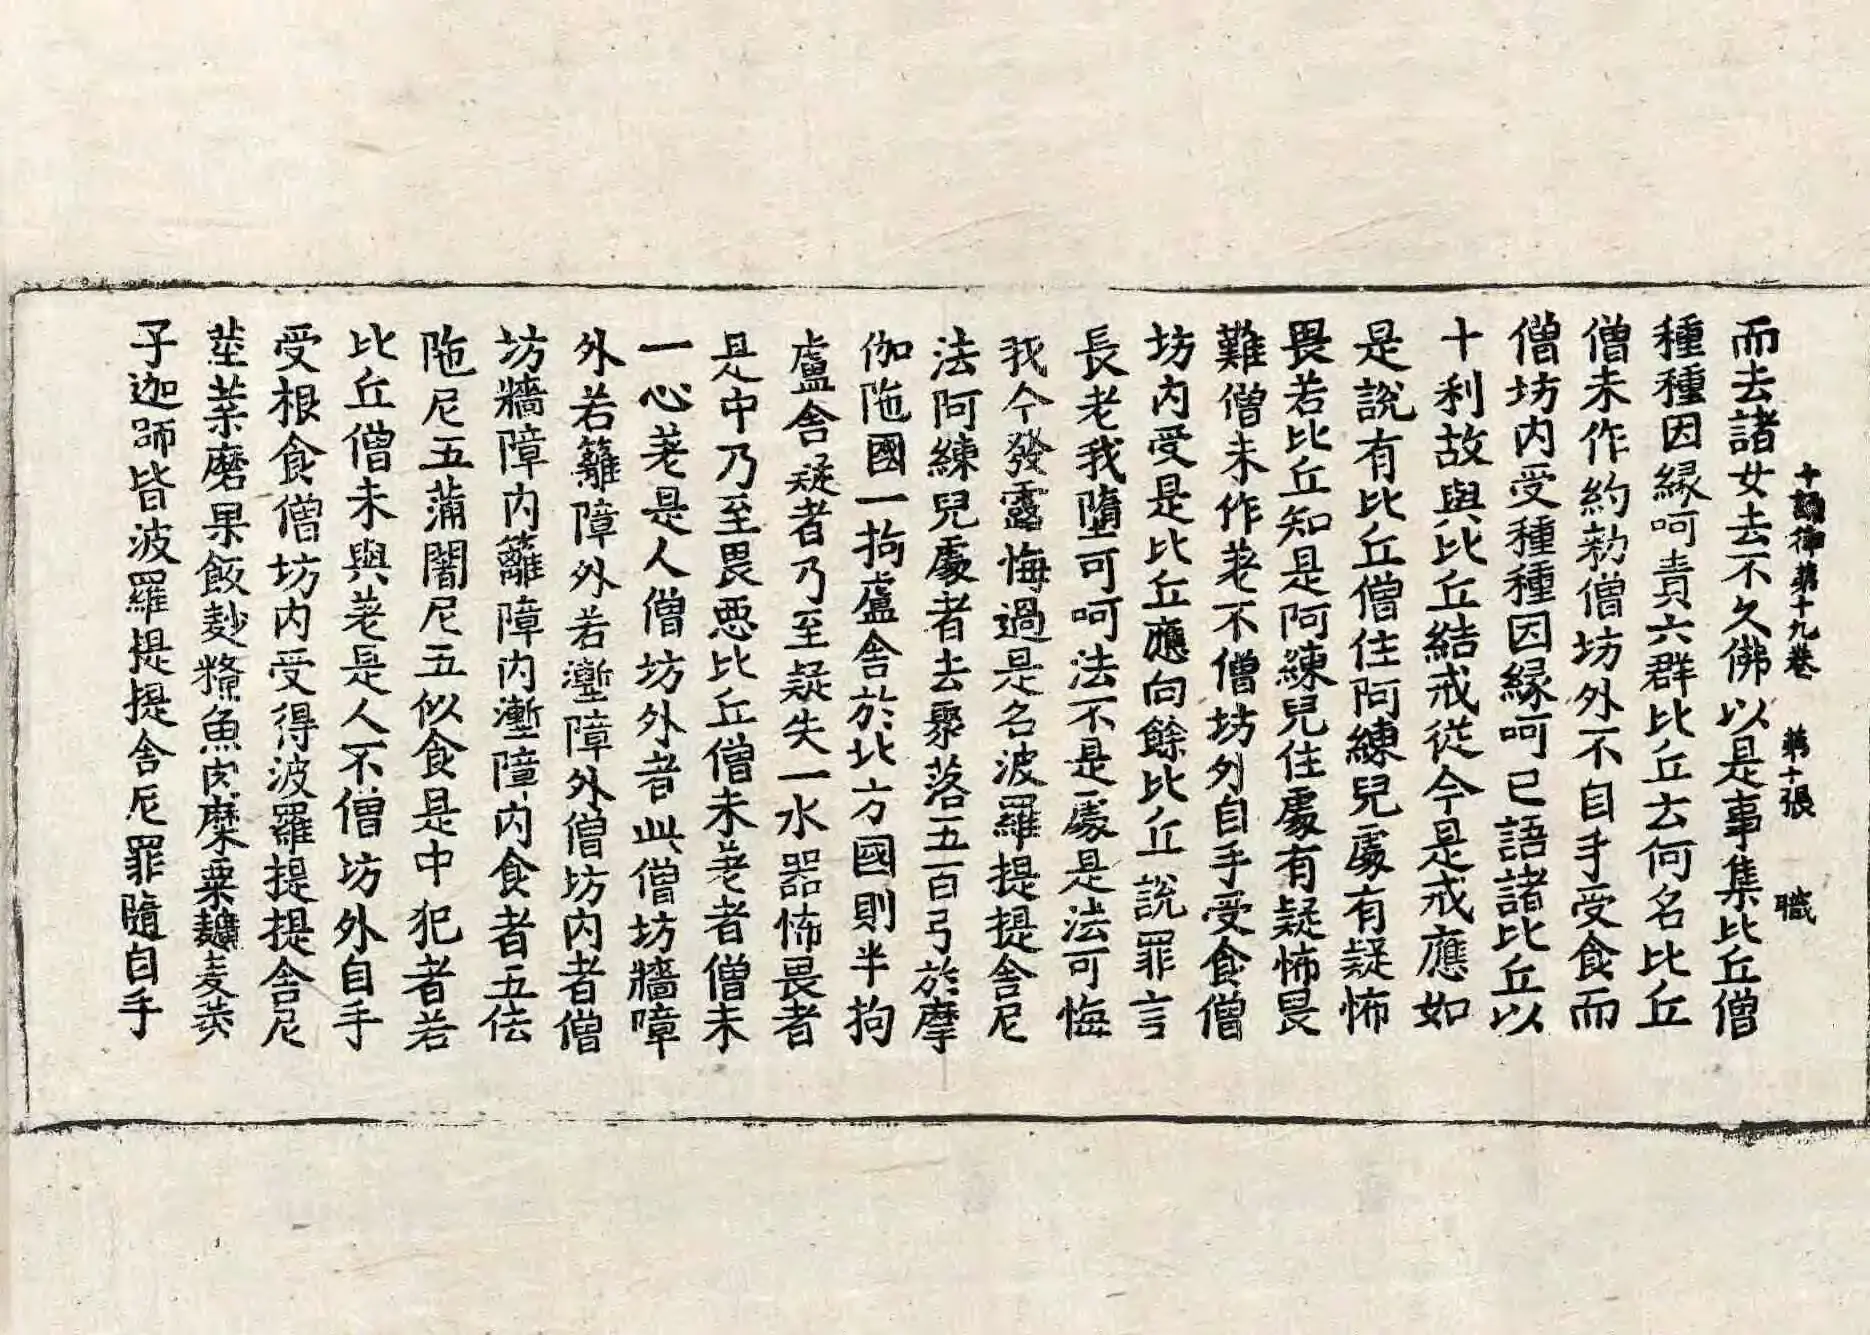 十誦律第十九卷 第十張 職
而去諸女去不久佛以是事集比丘僧
種種因緣呵責六群比丘云何名比丘
僧未作約勑僧坊外不自手受食而
僧坊內受種種因緣呵已語諸比丘以
十利故與比丘結戒從今是戒應如
是說有比丘僧住阿練兒處有疑怖
畏若比丘知是阿練兒住處有疑怖畏
難僧未作差不僧坊外自手受食僧
坊內受是比丘應向餘比丘說罪言
長老我墮可呵法不是處是法可悔
我今發露悔過是名波羅提提舍尼
法阿練兒處者去聚落五百弓於摩
伽陁國一拘盧舍於北方國則半拘
盧舍疑者乃至疑失一水器怖畏者
是中乃至畏惡比丘僧未差者僧未
一心差是人僧坊外者此僧坊牆障
外若籬障外若塹障外僧坊內者僧
坊牆障內籬障內塹障內食者五佉
陁尼五蒲闍尼五似食是中犯者若
比丘僧未與差是人不僧坊外自手
受根食僧坊內受得波羅提提舍尼
莖葉磨果飯麨糒魚肉糜粟䵃麦莠
子迦師皆波羅提提舍尼罪隨自手